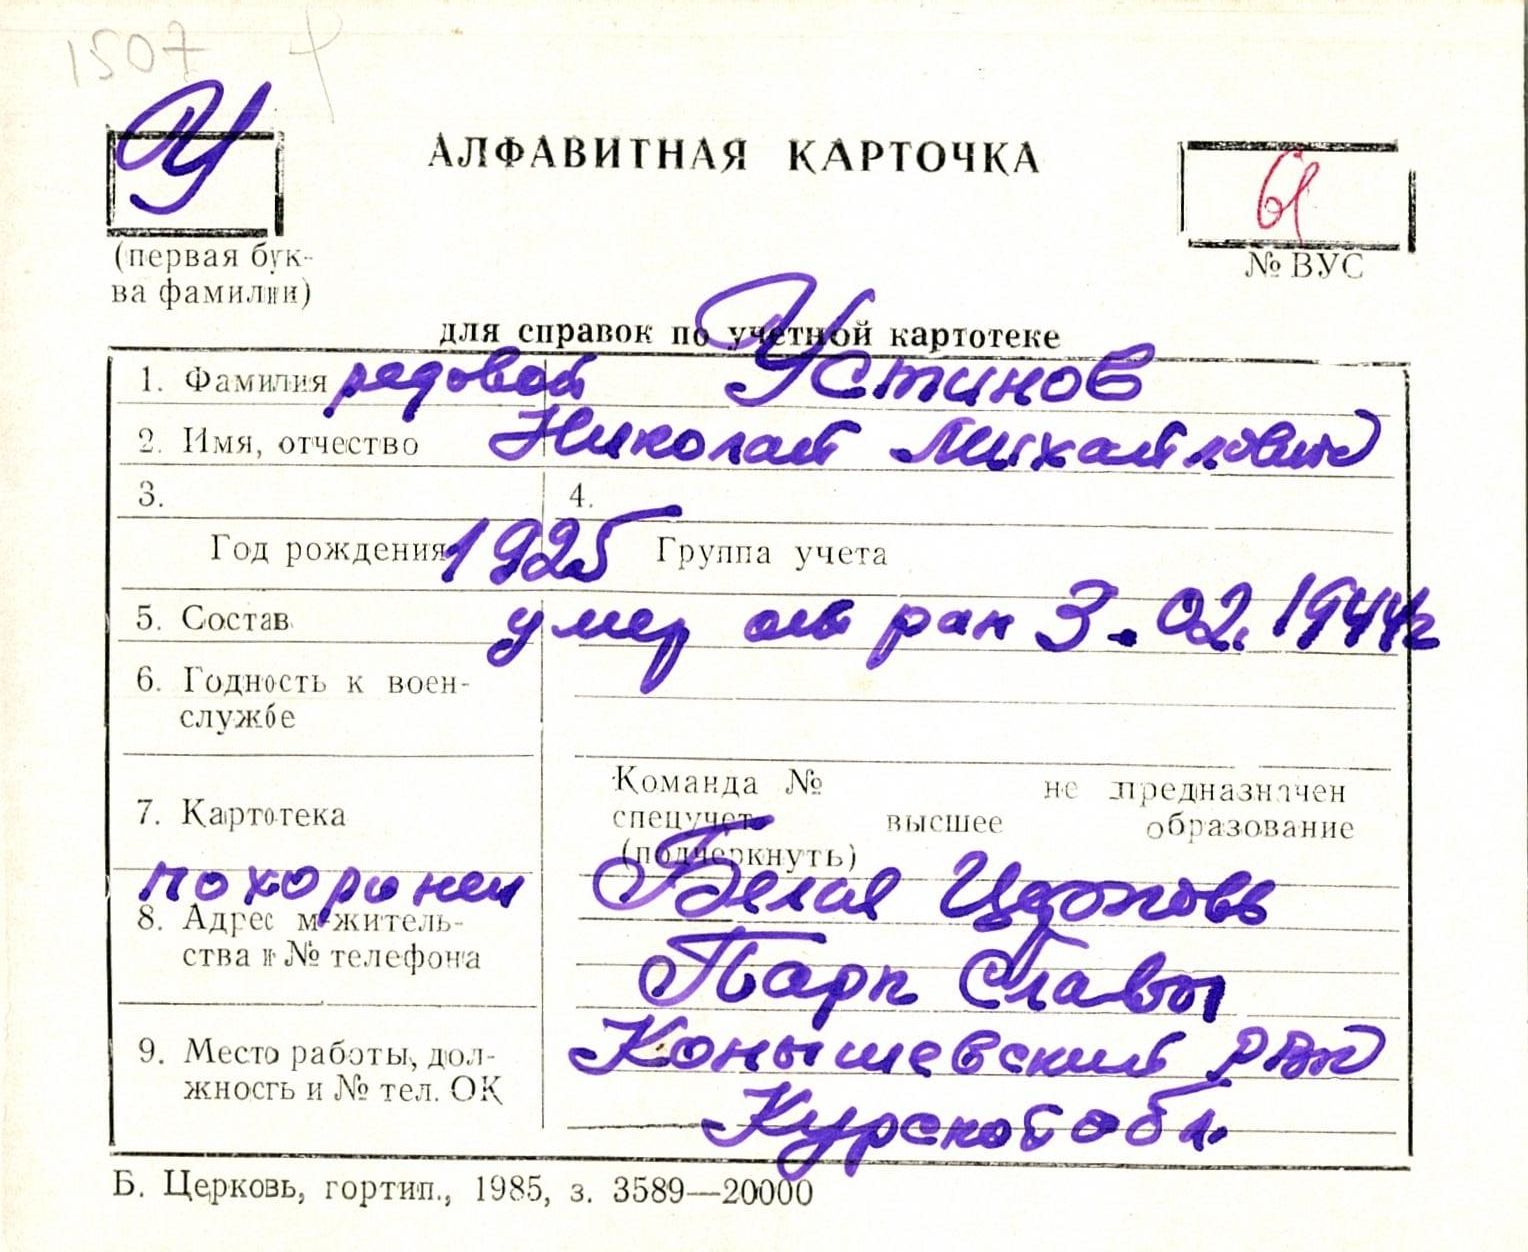 1507
У
АЛФАВИТНАЯ КАРТОЧКА
(первая бук-
ва фамилии)
№ ВУС
для справок по учетной картотеке
1. Фамилия редовой Устинов
2. Имя, отчество Николай Михайлович
3. 4.
Год рождения 1925 Группа учета
5. Состав умер от ран 3.02.1944г
6. Годность к воен-
службе
Команда № не предназначен
7. Картотека
спецучет высшее образование
(подчеркнуть)
похоронен Белая Церковь
8. Адрес м/житель-
ства и № телефона
Парк Славы
9. Место работы, дол-
жность и № тел. ОК
Конышевский РВК
Курской обл.
Б. Церковь, гортип., 1985, з. 3589—20000